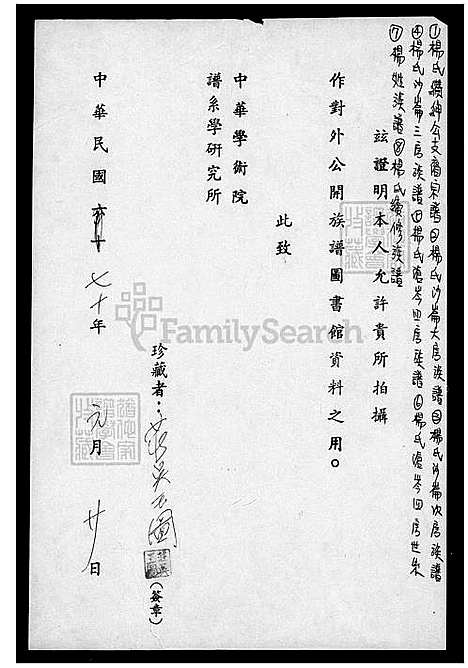 ①楊氏纘紳公支裔宗譜②楊氏沙崙大房族譜③楊氏沙崙次房族譜
④楊氏沙崙三房族譜⑤楊氏滬岑四房族譜⑥楊氏滬岑四房世系
⑦楊姓族譜⑧楊氏續修族譜
茲證明本人允許貴所拍攝
作對外公開族譜圖書館資料之用。
此致
中華學術院
譜系學研究所
珍藏者：
(簽章)
中華民國 七十年 元月 廿日
FamilySearch